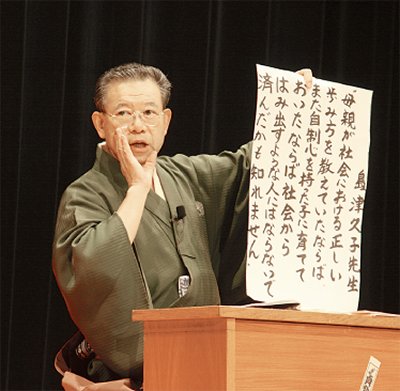 島津久子先生
“母親が社会における正しい
歩み方を教えていたならば、
また自制心を持った子に育てて
おいたならば社会から
はみ出すような人にはならないで
済んだかも知れません。